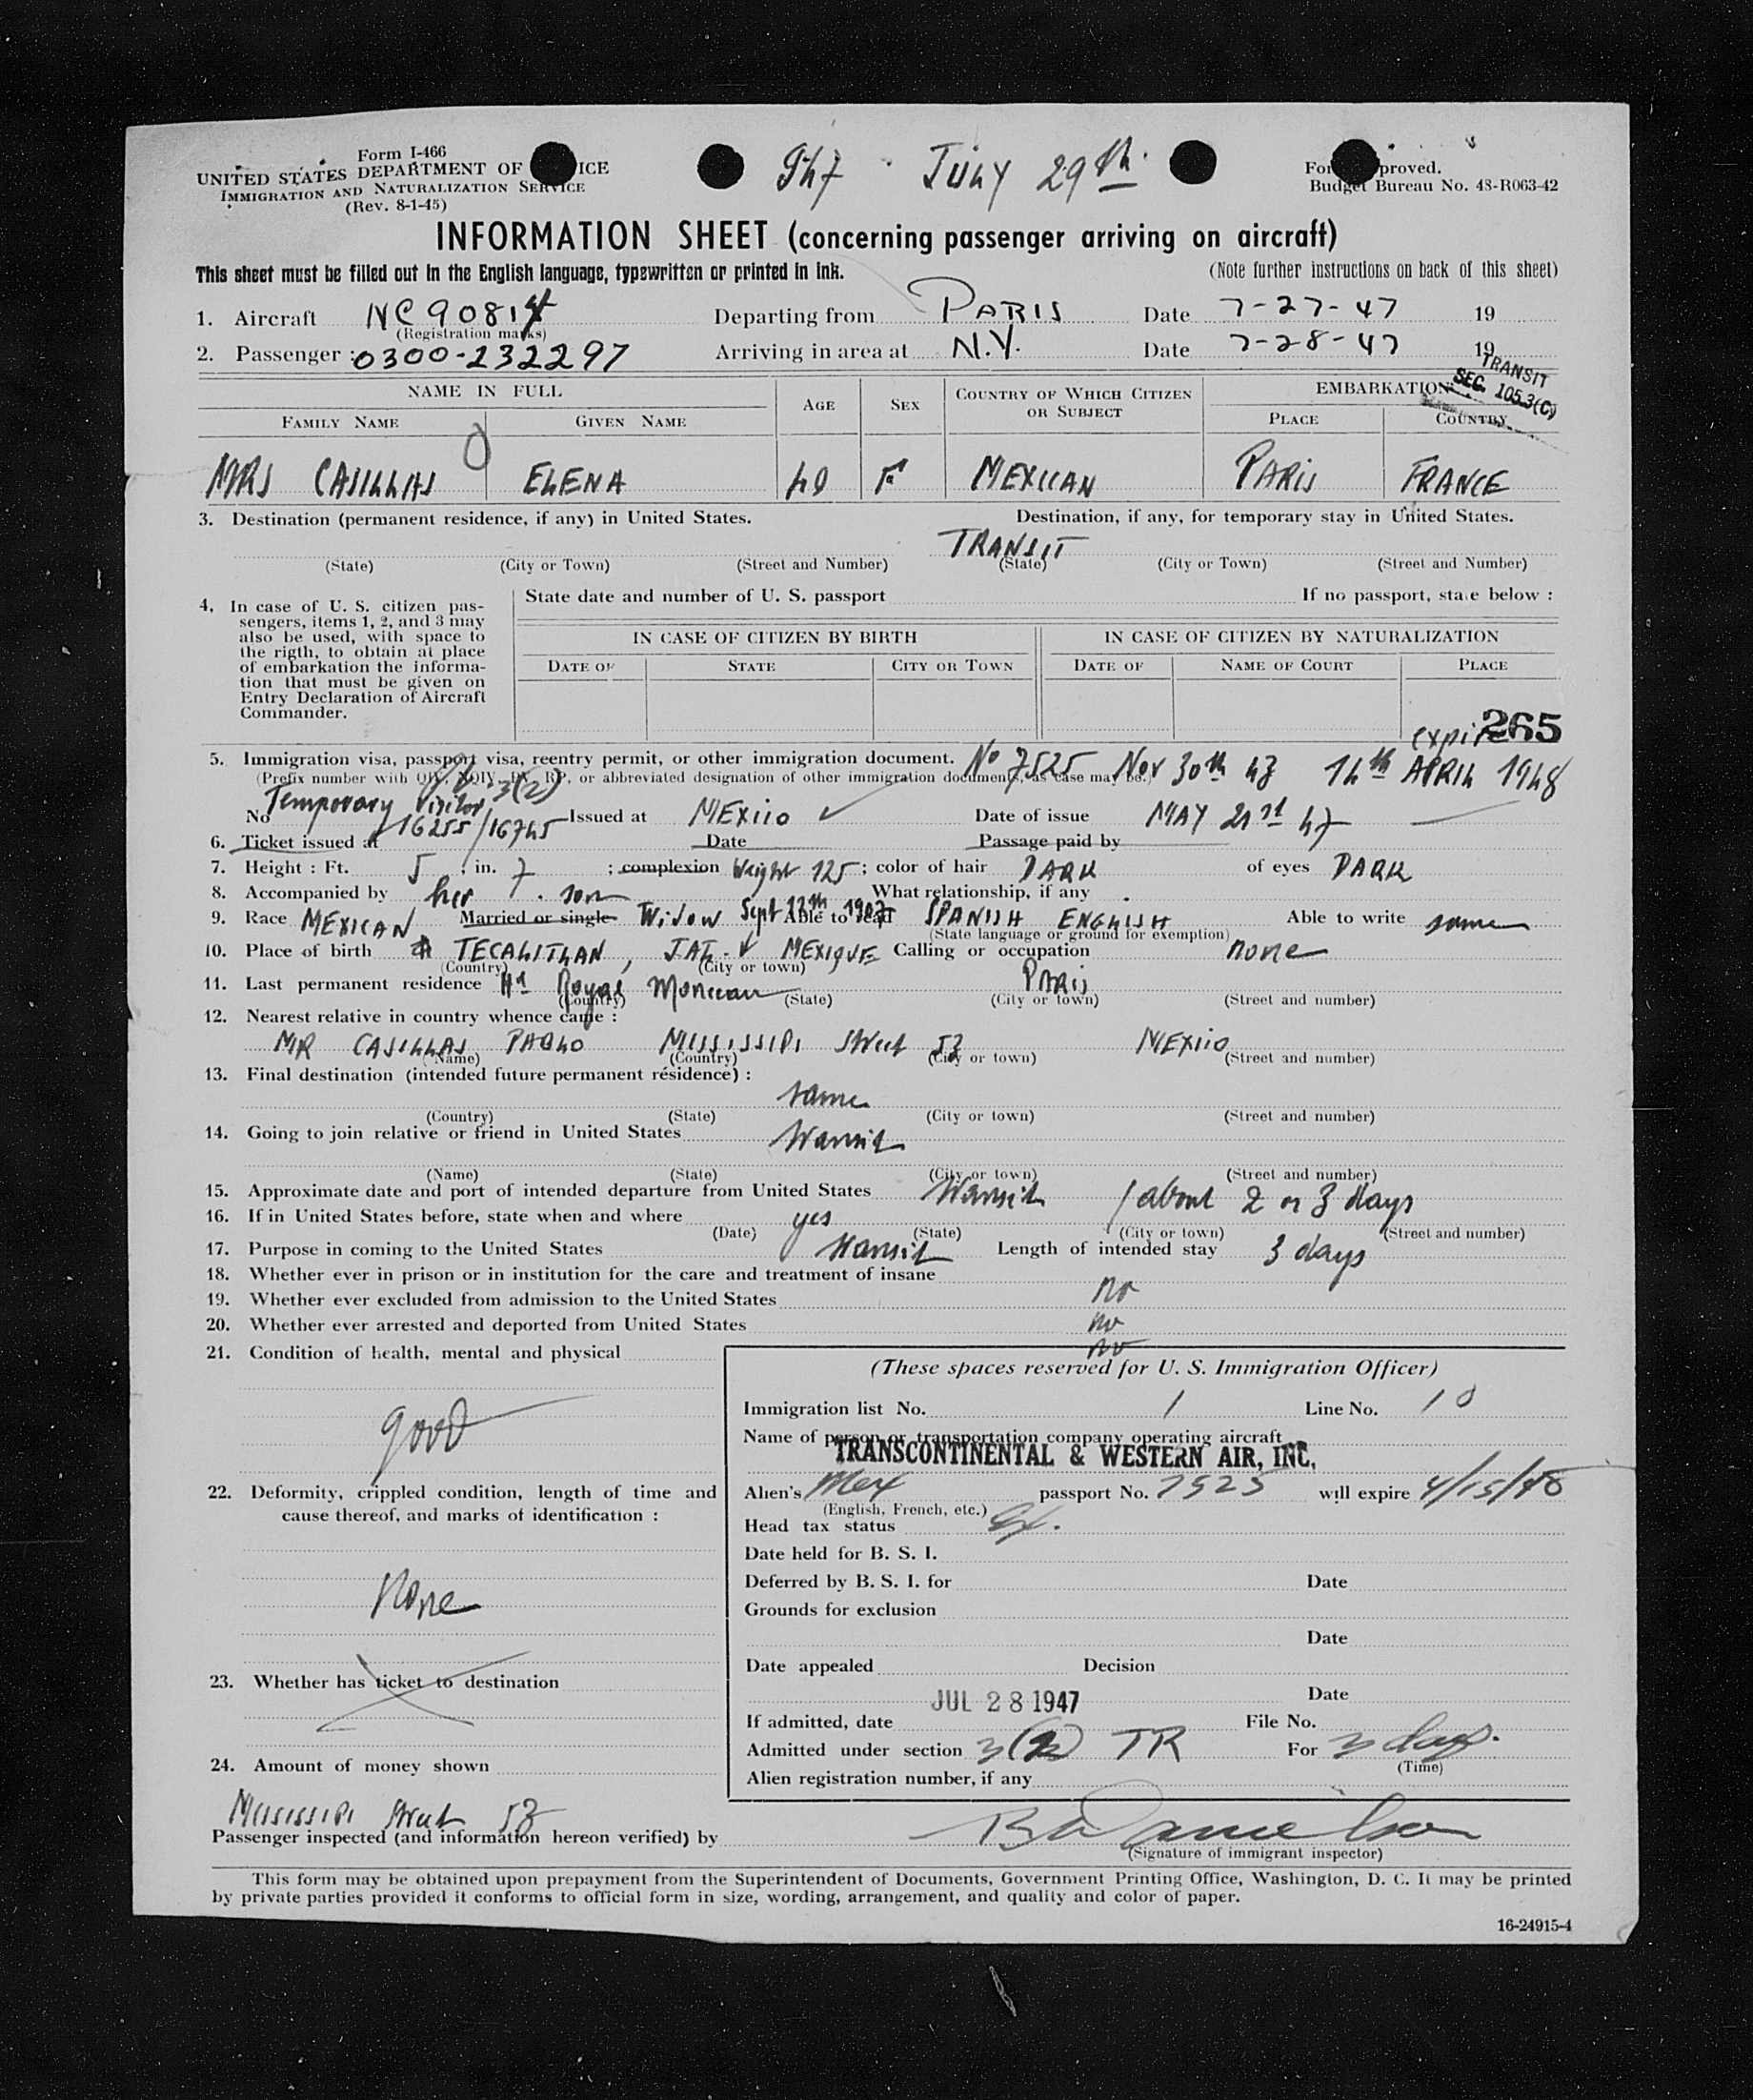 Form I-466
UNITED STATES DEPARTMENT OF ICE
IMMIGRATION AND NATURALIZATION SERVICE
(Rev. 8-1-45)
947 July 29th
For proved.
Budget Bureau No. 43-R063-42
INFORMATION SHEET (concerning passenger arriving on aircraft)
This sheet must be filled out in the English language, typewritten or printed in ink. (Note further instructions on back of this sheet)
1. Aircraft NC90814 Departing from PARIS Date 7-27-47 19
(Registration marks)
2. Passenger : 0300-232297 Arriving in area at N.Y. Date 7-28-47 19
TRANSIT
SEC. 105.3(C)
NAME IN FULL AGE SEX COUNTRY OF WHICH CITIZEN OR SUBJECT EMBARKATION
FAMILY NAME GIVEN NAME PLACE COUNTRY
MRS CASILLAS ELENA 40 F MEXICAN PARIS FRANCE
3. Destination (permanent residence, if any) in United States. Destination, if any, for temporary stay in United States.
TRANSIT
(State) (City or Town) (Street and Number) (State) (City or Town) (Street and Number)
4. In case of U. S. citizen pas-
sengers, items 1, 2, and 3 may
also be used, with space to
the rigth, to obtain at place
of embarkation the informa-
tion that must be given on
Entry Declaration of Aircraft
Commander.
State date and number of U. S. passport If no passport, state below :
IN CASE OF CITIZEN BY BIRTH IN CASE OF CITIZEN BY NATURALIZATION
DATE OF STATE CITY OR TOWN DATE OF NAME OF COURT PLACE
265
5. Immigration visa, passport visa, reentry permit, or other immigration document. No 7525 Nov 30th 43 14th APRIL 1948
(Prefix number with QIV, NQIV, PV, RP, or abbreviated designation of other immigration document, as case may be.)
Temporary Visitor 3(2)
No 16255/16745 Issued at MEXICO Date of issue MAY 21st 47
6. Ticket issued at Date Passage paid by
7. Height : Ft. 5 ; in. 7 ; complexion Weight 125 ; color of hair DARK of eyes DARK
8. Accompanied by her son What relationship, if any
9. Race MEXICAN Married or single Widow Sept 12th 1907 Able to read SPANISH ENGLISH Able to write same
(State language or ground for exemption)
10. Place of birth TECALITLAN, JAL. MEXIQUE Calling or occupation none
(Country) (City or town)
11. Last permanent residence Hl Royal Monceau PARIS
(Country) (State) (City or town) (Street and number)
12. Nearest relative in country whence came :
MR CASILLAS PABLO MISSISSIPI Street 53 MEXICO
(Name) (Country) (City or town) (Street and number)
13. Final destination (intended future permanent résidence) :
same
(Country) (State) (City or town) (Street and number)
14. Going to join relative or friend in United States transit
(Name) (State) (City or town) (Street and number)
15. Approximate date and port of intended departure from United States transit / about 2 or 3 days
16. If in United States before, state when and where yes
(Date) (State) (City or town) (Street and number)
17. Purpose in coming to the United States transit Length of intended stay 3 days
18. Whether ever in prison or in institution for the care and treatment of insane no
19. Whether ever excluded from admission to the United States no
20. Whether ever arrested and deported from United States no
21. Condition of health, mental and physical
good
22. Deformity, crippled condition, length of time and
cause thereof, and marks of identification :
None
23. Whether has ticket to destination
24. Amount of money shown
(These spaces reserved for U. S. Immigration Officer)
Immigration list No. 1 Line No. 10
Name of person or transportation company operating aircraft
TRANSCONTINENTAL & WESTERN AIR, INC.
Alien's Mex passport No. 7525 will expire 4/15/48
(English, French, etc.)
Head tax status Ex.
Date held for B. S. I.
Deferred by B. S. I. for Date
Grounds for exclusion
Date
Date appealed Decision
JUL 28 1947 Date
If admitted, date File No.
Admitted under section 3(2) TR For 3 days.
(Time)
Alien registration number, if any
Mississipi Street 53
Passenger inspected (and information hereon verified) by
(Signature of immigrant inspector)
This form may be obtained upon prepayment from the Superintendent of Documents, Government Printing Office, Washington, D. C. It may be printed
by private parties provided it conforms to official form in size, wording, arrangement, and quality and color of paper.
16-24915-4